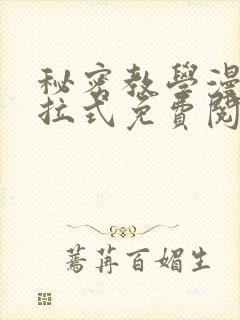 秘密教學漫
拉式免費閱
蔫苒百媚生